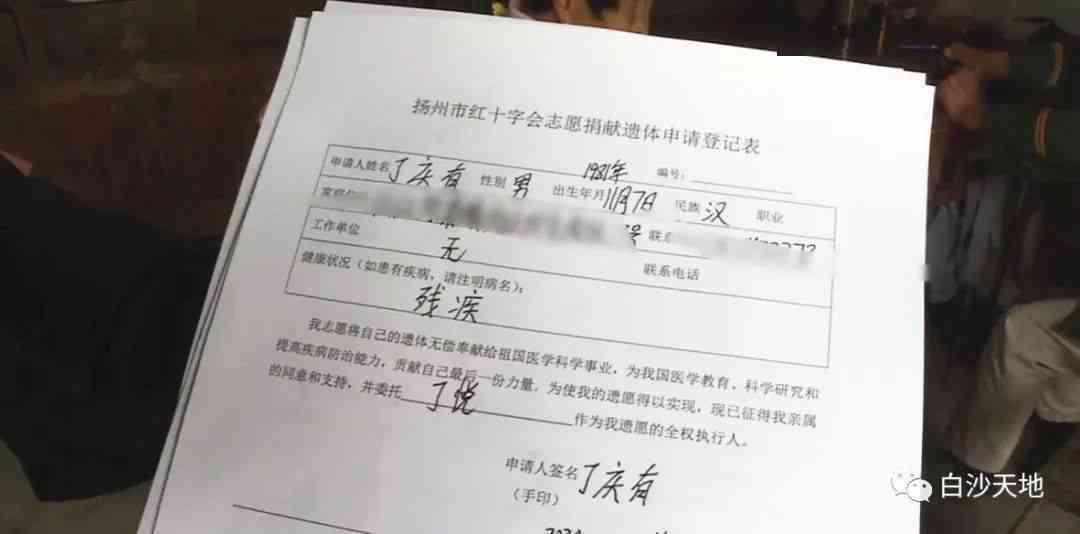 扬州市红十字会志愿捐献遗体申请登记表
编号：
申请人姓名 丁庆有 性别 男 出生年月 1981年11月7日 民族 汉 职业
工作单位 无 联系电话
健康状况（如患有疾病，请注明病名）：
残疾
我志愿将自己的遗体无偿奉献给祖国医学科学事业，为我国医学教育、科学研究和
提高疾病防治能力，贡献自己最后一份力量，为使我的遗愿得以实现，现已征得我亲属
的同意和支持，并委托 丁悦 作为我遗愿的全权执行人。
申请人签名 丁庆有
（手印）
白沙天地